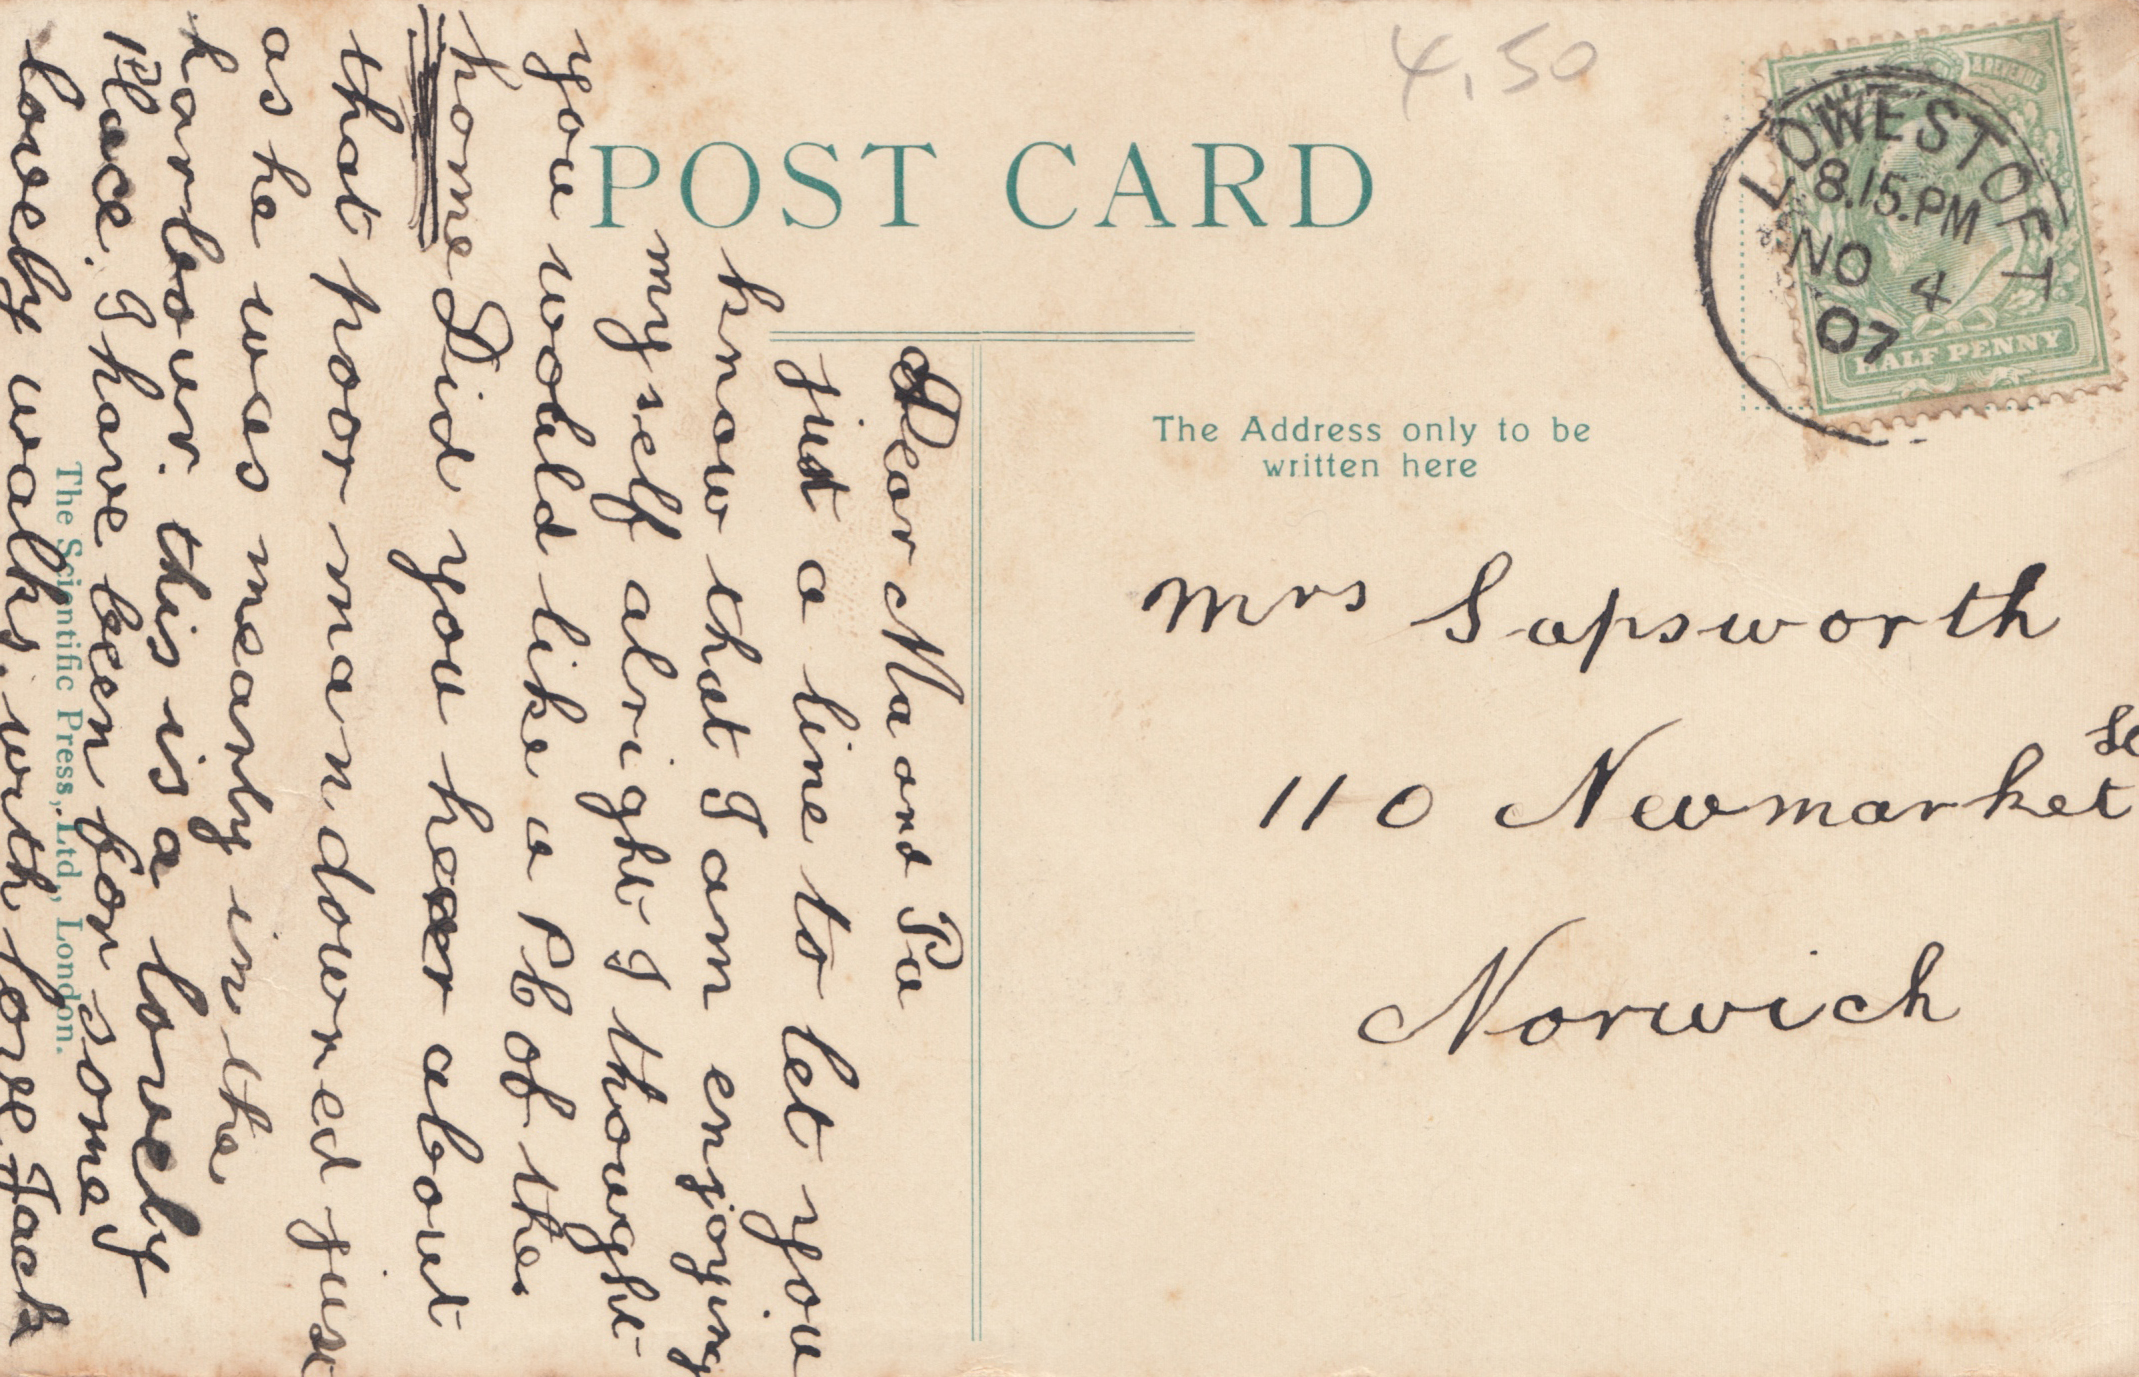 4.50
POST CARD
REVENUE
LOWESTOFT
8.15.PM
NO 4
07
HALF PENNY
The Address only to be
written here
Mrs Sapsworth
110 Newmarket St
Norwich
Dear Ma and Pa
just a line to let you
know that I am enjoying
myself alright I thought
you would like a PC of the
home Did you hear about
that poor man downed just
as he was meanly in the
harbour. this is a lovely
place. I have been for some
lovely walks. with love Jack
The Scientific Press, Ltd., London.